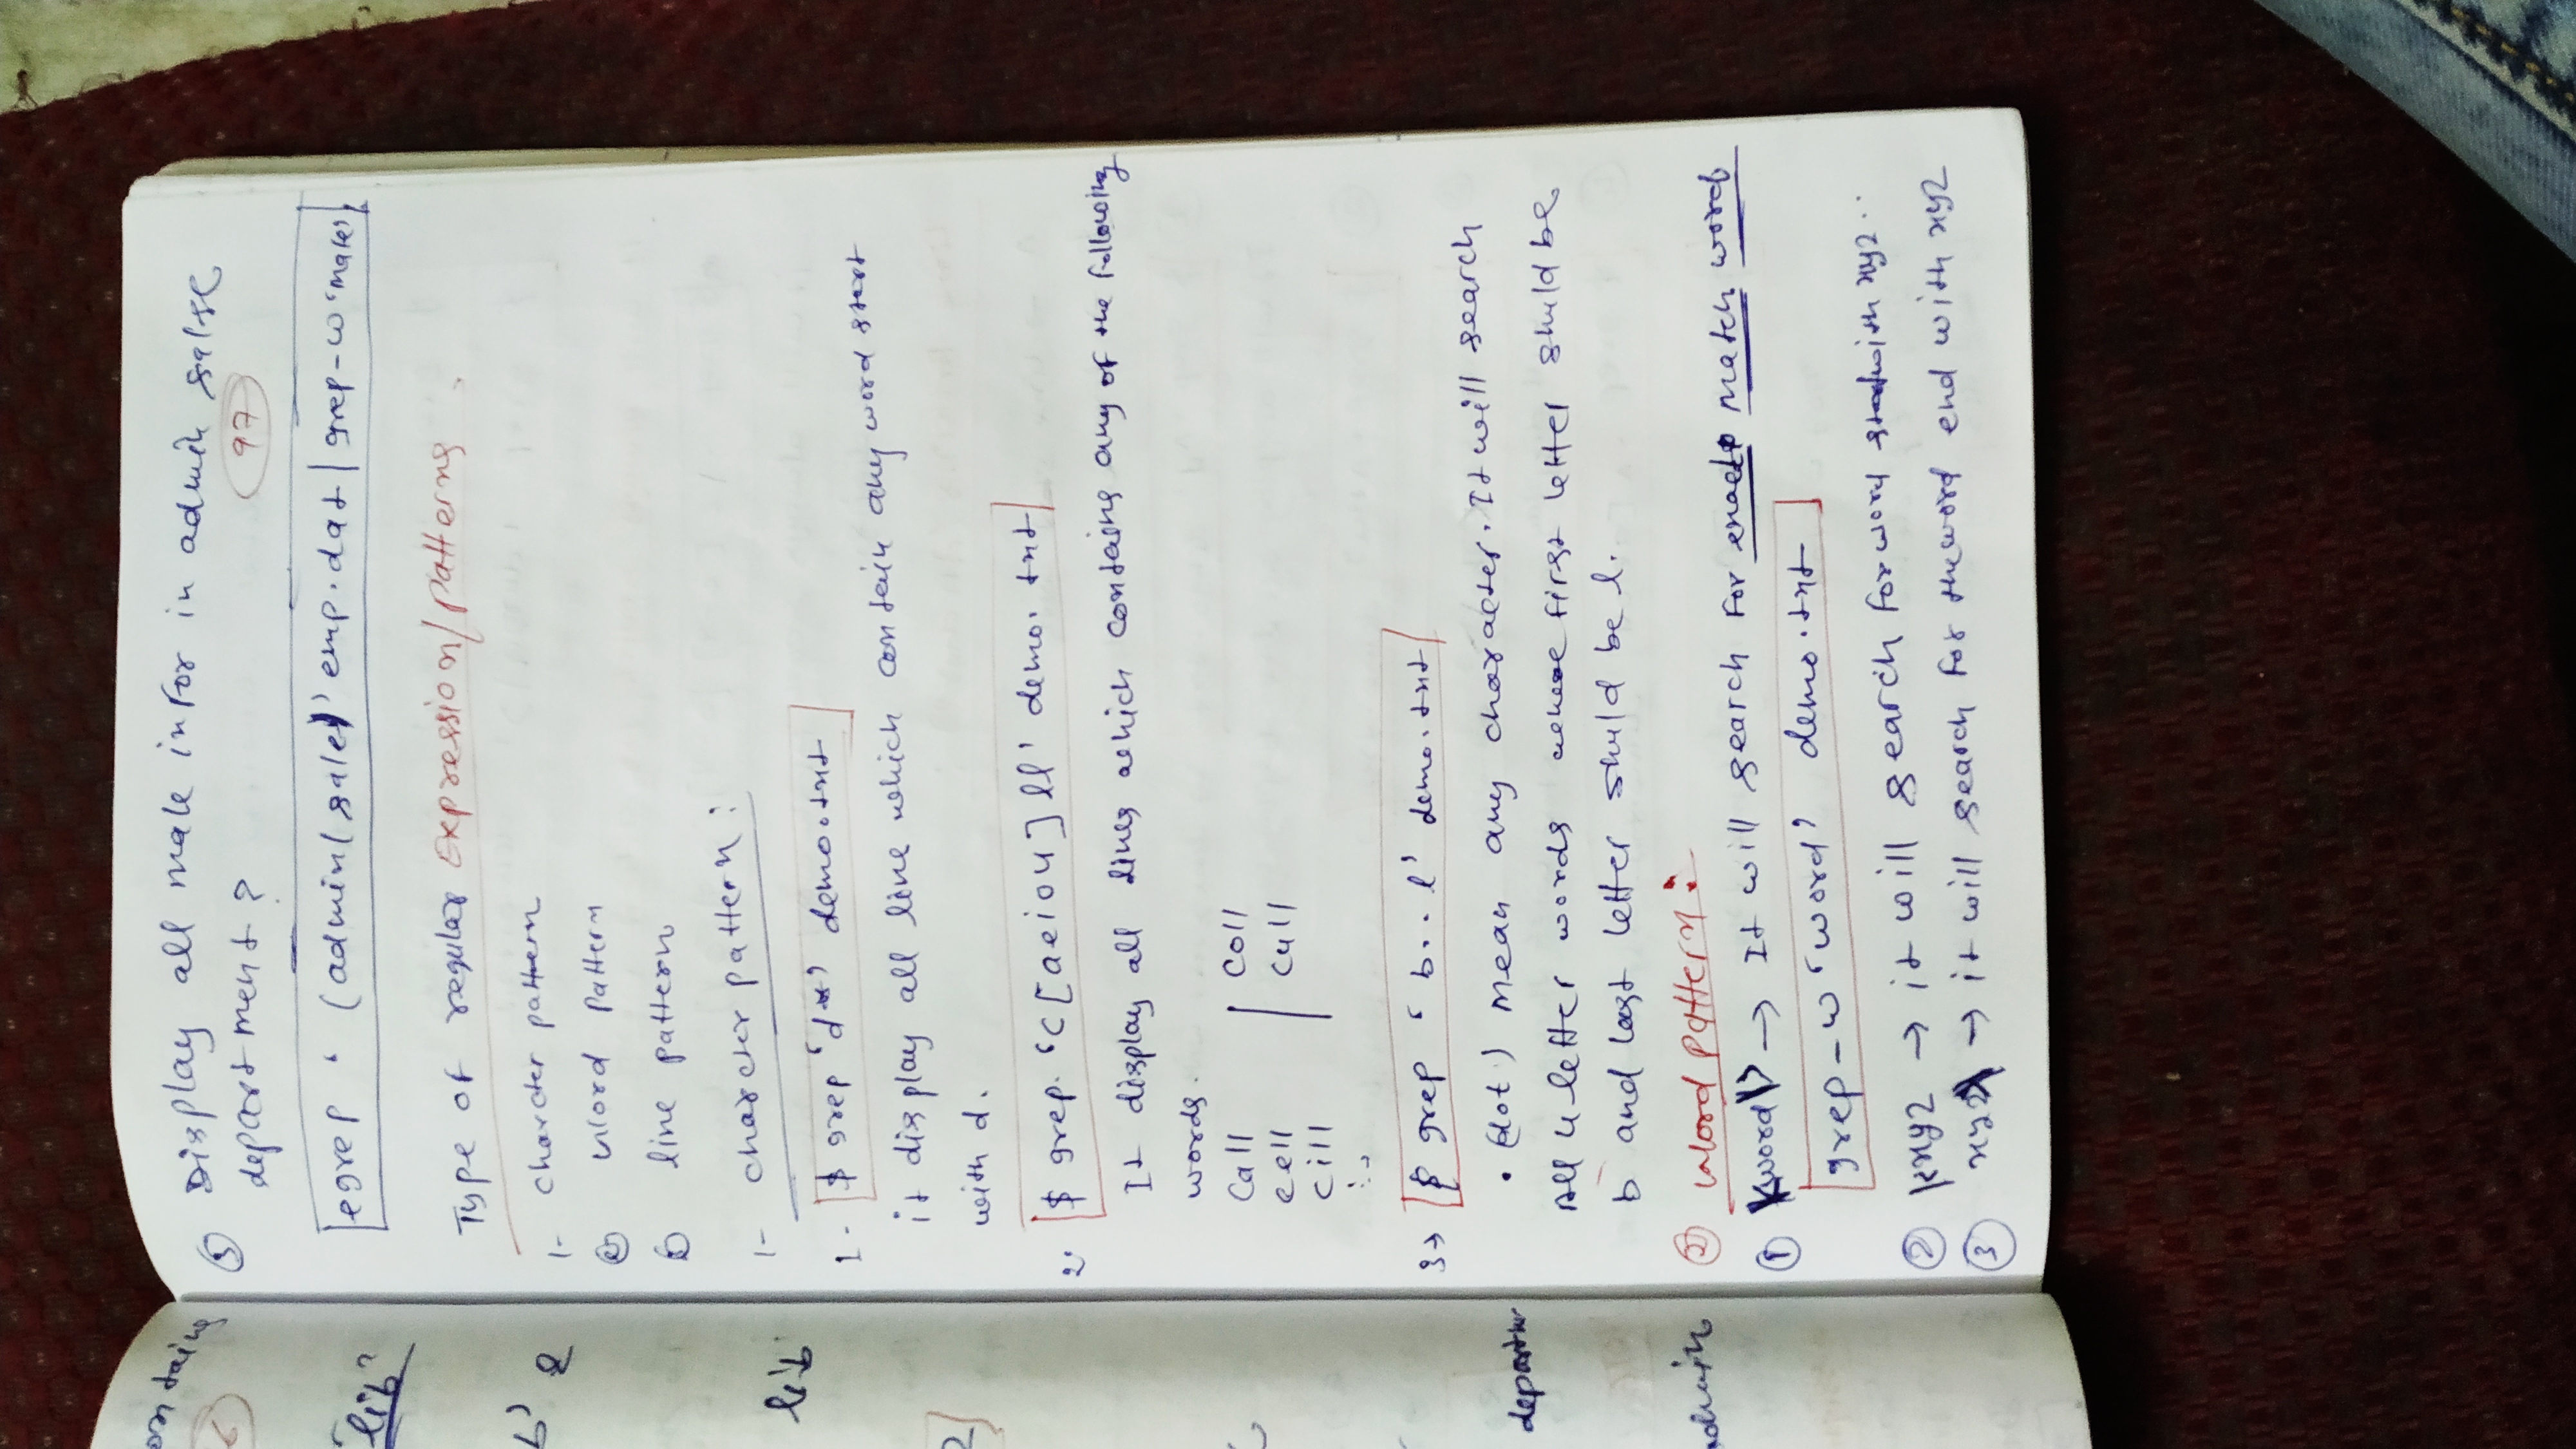 ontaing
6
lib'
b' &
lib
2]
departm
admin
⑤ Display all male infor in admin salse
department?
97
egrep ' (admin|sales)' emp.dat | grep -w 'male'
Type of regular Expression/patterns
1- charcter pattern
② Word Pattern
③ line pattern
1- charcter pattern:
1- $ grep 'd*' demo.txt
it display all line which contain any word start
with d.
2. $ grep. 'c[aeiou]ll' demo.txt
It display all lines which contains any of the following
words.
Call | Coll
cell | Cull
Cill
3→ $ grep ' b..l' demo.txt
. (dot) mean any character. It will search
All 4 letter words where first letter shuld be
b and last letter shuld be l.
② Word pattern:
① \<word\> → It will search for exact match word
grep -w 'word' demo.txt
② \<xyz → it will search for word start with xyz..
③ xyz\> → it will search for the word end with xyz